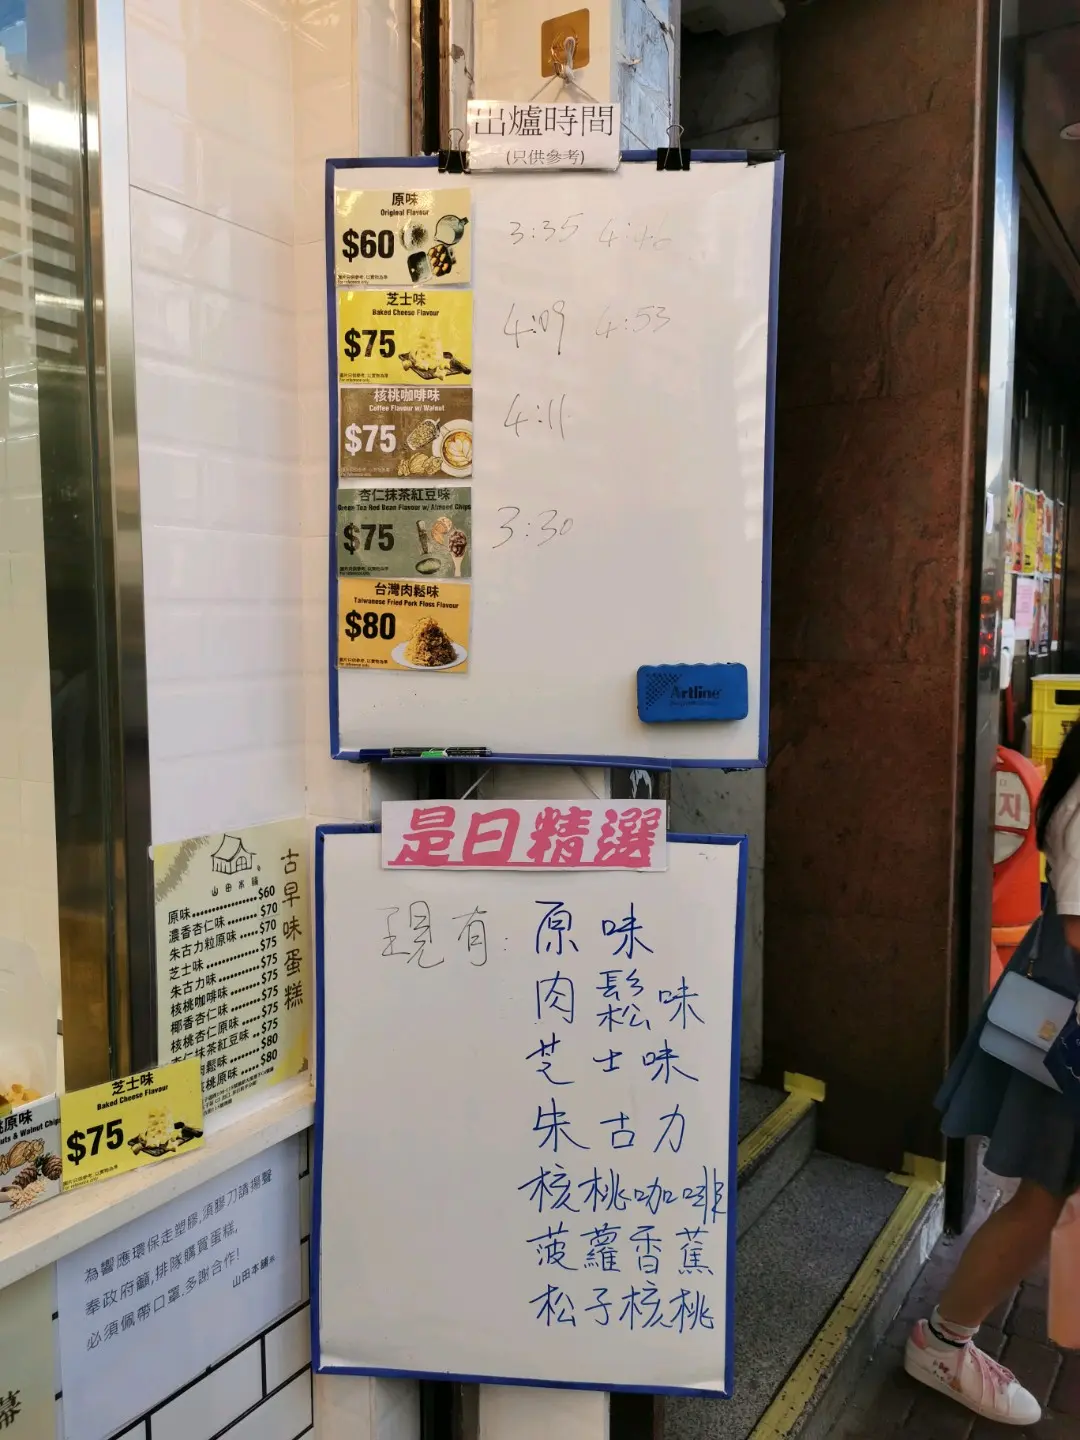 出爐時間
(只供參考)
原味
Original Flavour
$60
3:35 4:46
芝士味
Baked Cheese Flavour
$75
4:09 4:53
核桃咖啡味
Coffee Flavour w/ Walnut
$75
4:11
杏仁抹茶紅豆味
Green Tea Red Bean Flavour w/ Almond Chips
$75
3:30
台灣肉鬆味
Taiwanese Fried Pork Floss Flavour
$80
Artline
是日精選
現有: 原味
肉鬆味
芝士味
朱古力
核桃咖啡
菠蘿香蕉
松子核桃
山田本舖
古早味蛋糕
原味 $60
濃香杏仁味 $70
朱古力粒原味 $70
芝士味 $75
朱古力味 $75
核桃咖啡味 $75
椰香杏仁味 $75
核桃杏仁原味 $75
杏仁抹茶紅豆味 $75
肉鬆味 $80
核桃原味 $80
芝士味
Baked Cheese Flavour
$75
桃原味
& Walnut Chip
為響應環保走塑膠,須膠刀請揚聲
奉政府籲,排隊購買蛋糕,
必須佩帶口罩,多謝合作!
山田本舖